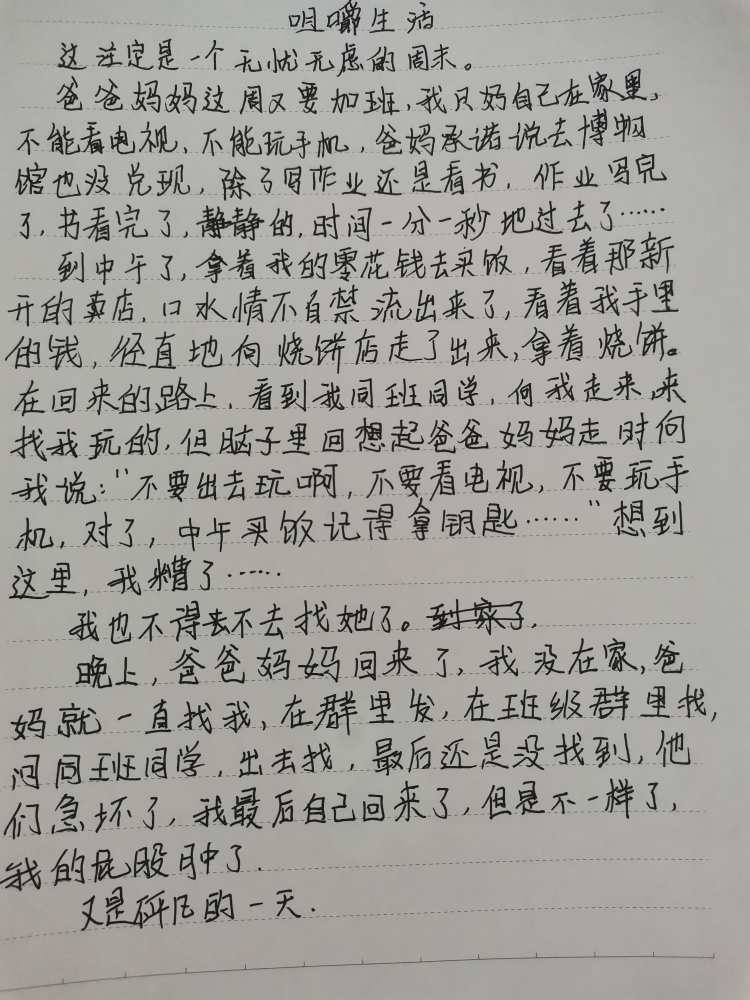 咀嚼生活
这注定是一个无忧无虑的周末。
爸爸妈妈这周又要加班,我只好自己在家里,
不能看电视,不能玩手机,爸妈承诺说去博物
馆也没兑现,除了写作业还是看书,作业写完
了,书看完了,静静的,时间一分一秒地过去了……
到中午了,拿着我的零花钱去买饭,看着那新
开的卖店,口水情不自禁流出来了,看着我手里
的钱,径直地向烧饼店走了出来,拿着烧饼。
在回来的路上,看到我同班同学,向我走来,来
找我玩的,但脑子里回想起爸爸妈妈走时向
我说:“不要出去玩啊,不要看电视,不要玩手
机,对了,中午买饭记得拿钥匙……”想到
这里,我糟了……
我也不得去不去找她了。到家了.
晚上,爸爸妈妈回来了,我没在家,爸
妈就一直找我,在群里发,在班级群里找,
问同班同学,出去找,最后还是没找到,他
们急坏了,我最后自己回来了,但是不一样了,
我的屁股肿了.
又是砰凡的一天.